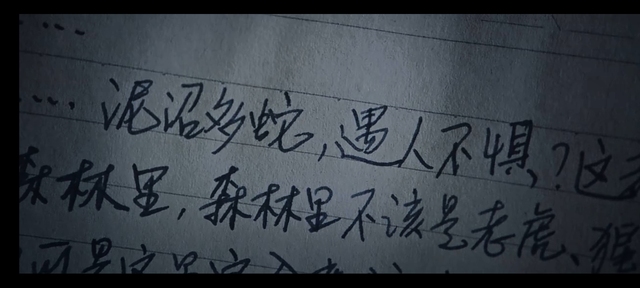 ……
……泥沼多蛇,遇人不惧?这
森林里,森林里不该是老虎、猩